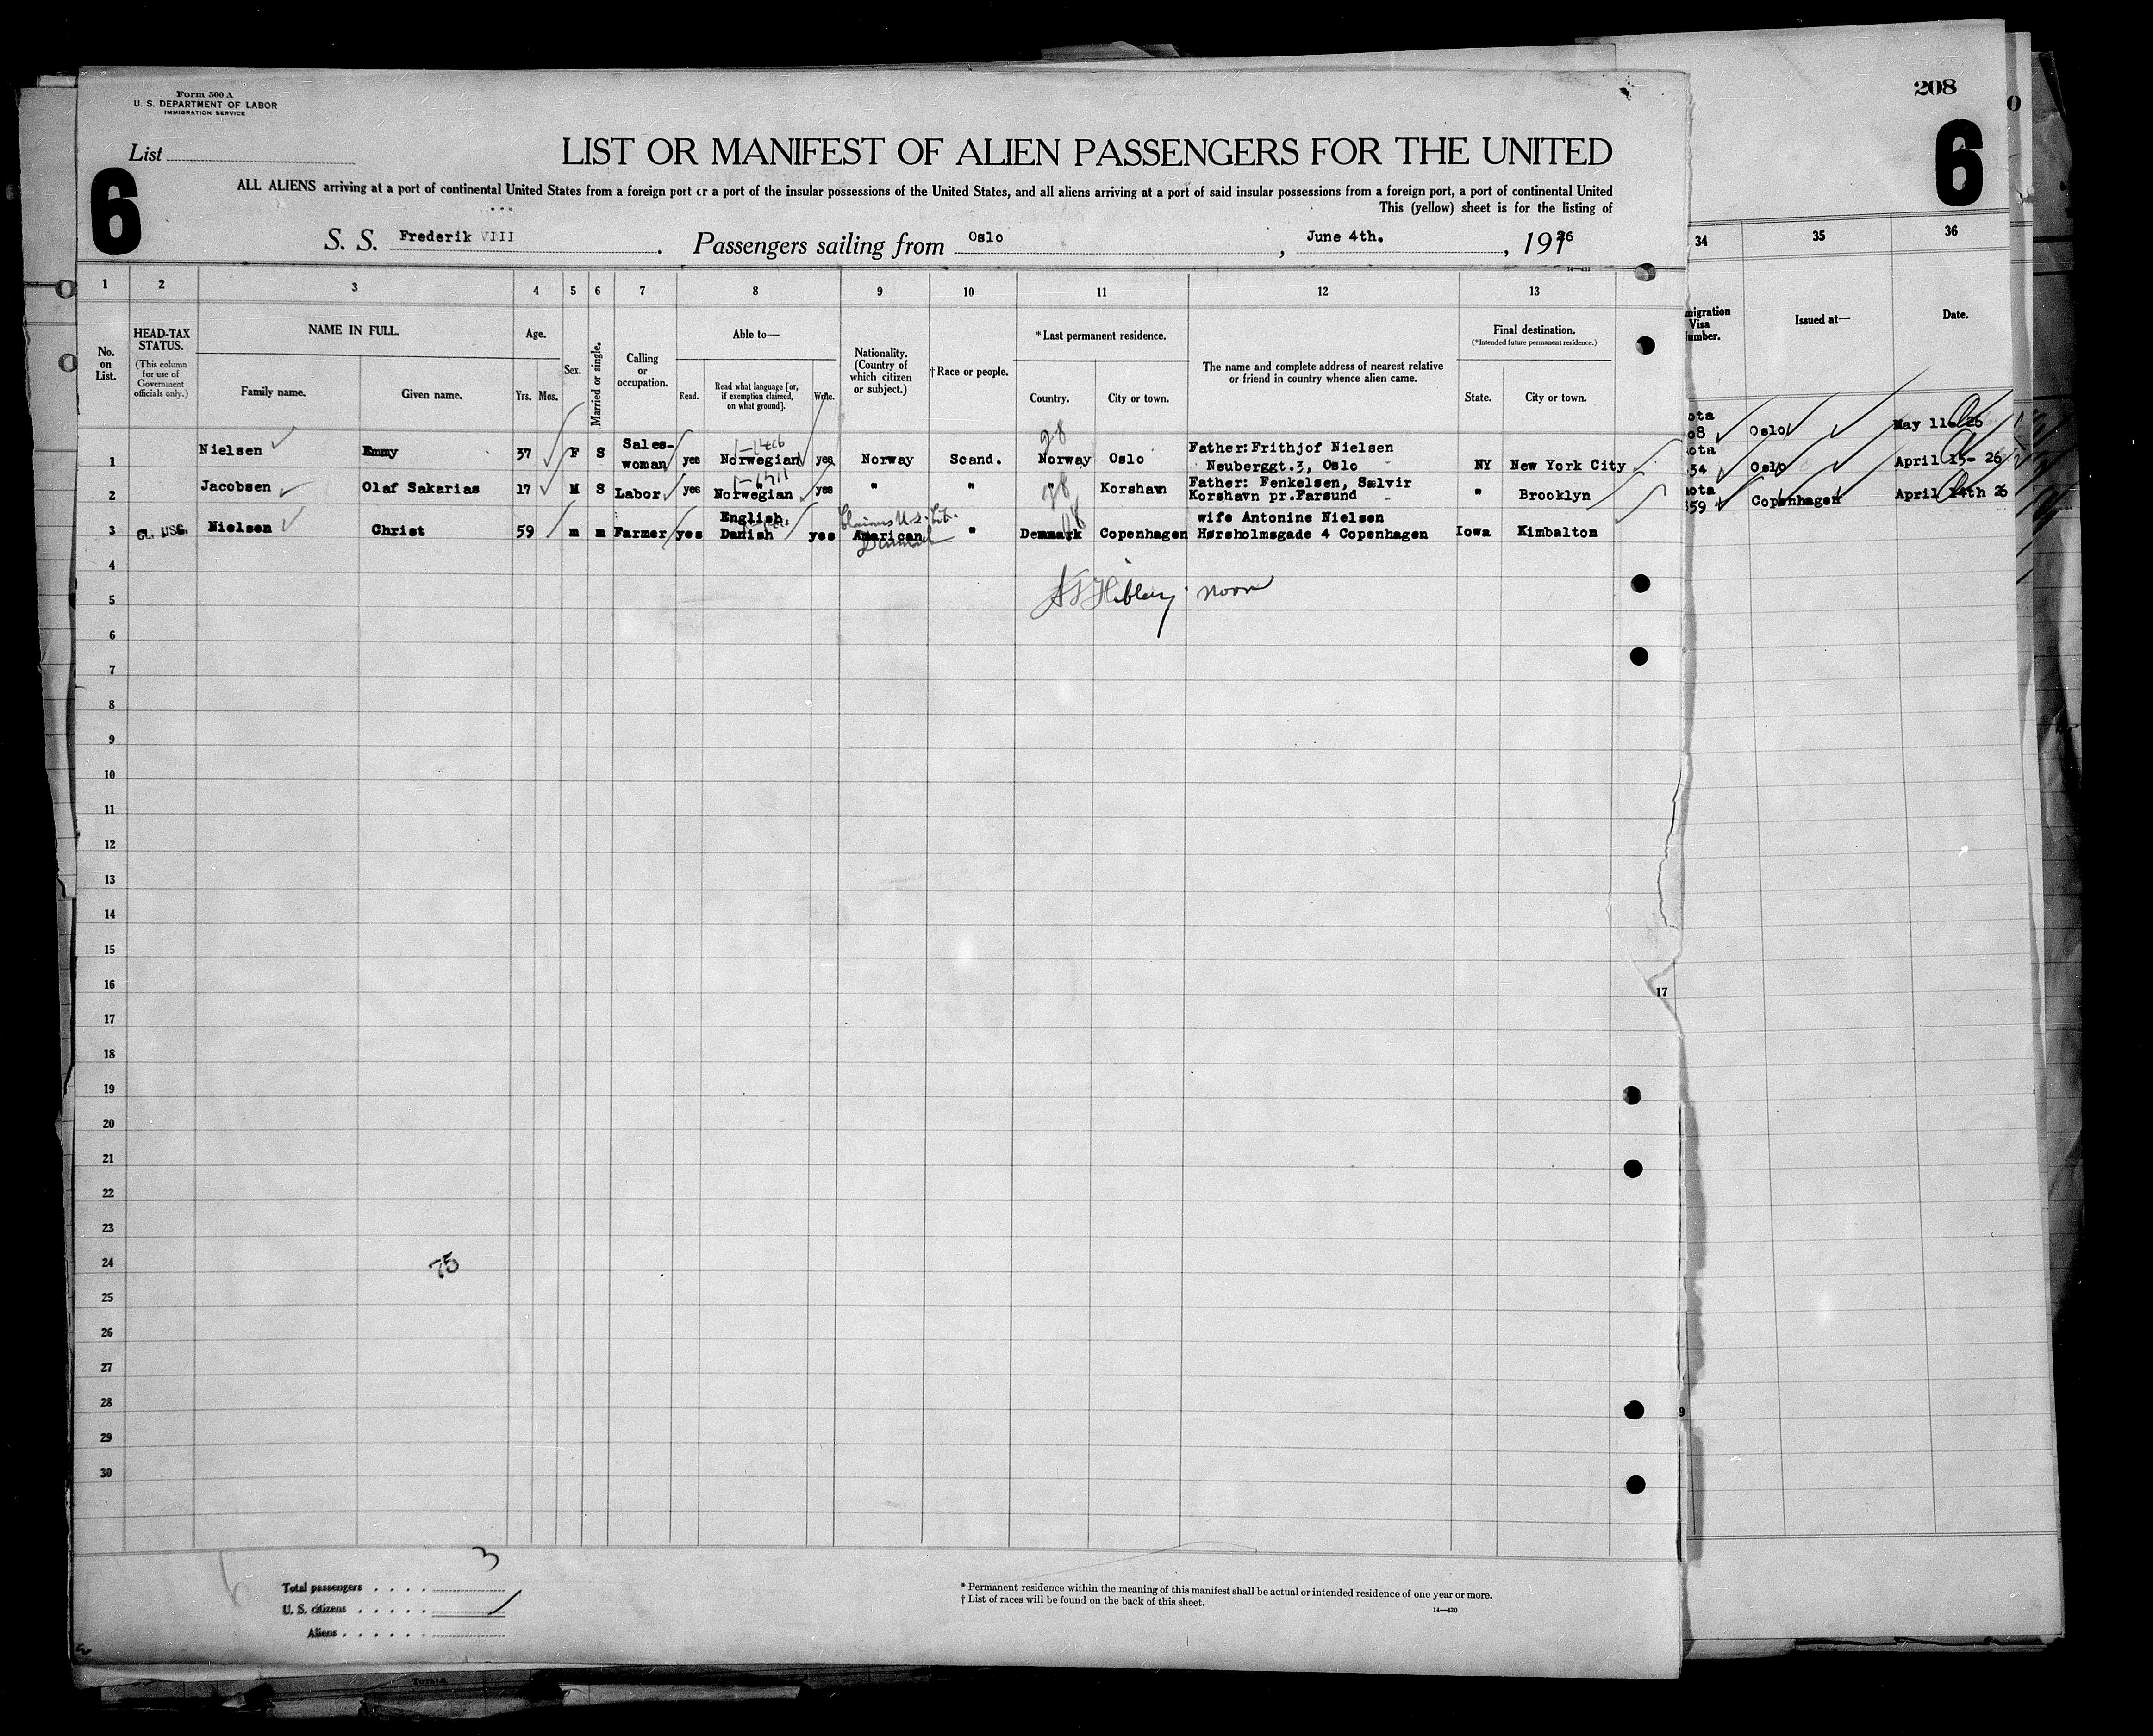 Form 500 A
U. S. DEPARTMENT OF LABOR
IMMIGRATION SERVICE
208
List
6
6
LIST OR MANIFEST OF ALIEN PASSENGERS FOR THE UNITED
ALL ALIENS arriving at a port of continental United States from a foreign port or a port of the insular possessions of the United States, and all aliens arriving at a port of said insular possessions from a foreign port, a port of continental United
This (yellow) sheet is for the listing of
S. S. Frederik VIII. Passengers sailing from Oslo, June 4th., 1926
1 2 3 4 5 6 7 8 9 10 11 12 13 34 35 36
No. on List.
HEAD-TAX STATUS.
(This column for use of Government officials only.)
NAME IN FULL.
Family name. Given name.
Age.
Yrs. Mos.
Sex.
Married or single.
Calling or occupation.
Able to—
Read. Read what language [or, if exemption claimed, on what ground]. Write.
Nationality. (Country of which citizen or subject.)
†Race or people.
*Last permanent residence.
Country. City or town.
The name and complete address of nearest relative or friend in country whence alien came.
Final destination.
(*Intended future permanent residence.)
State. City or town.
migration Visa umber.
Issued at—
Date.
1 Nielsen Emmy 37 F S Sales-woman yes Norwegian yes Norway Scand. Norway Oslo Father: Frithjof Nielsen Neuberggt.3, Oslo NY New York City
ota 08 Oslo May 11. 26
2 Jacobsen Olaf Sakarias 17 M S Labor yes Norwegian yes " " " Korshavn Father: Fenkelsen, Sælvir Korshavn pr.Farsund " Brooklyn
ota 34 Oslo April 15- 26
3 CL. USC. Nielsen Christ 59 m m Farmer yes English Danish yes Claims U.S. Cit. American Denmark " Denmark Copenhagen wife Antonine Nielsen Hørsholmsgade 4 Copenhagen Iowa Kimbalton
uota 359 Copenhagen April 14th 26
4
5
noon
6
7
8
9
10
11
12
13
14
15
16
17
17
18
19
20
21
22
23
24
75
25
26
27
28
29
9
30
3
Total passengers
U. S. citizens
Aliens
* Permanent residence within the meaning of this manifest shall be actual or intended residence of one year or more.
† List of races will be found on the back of this sheet.
14—430